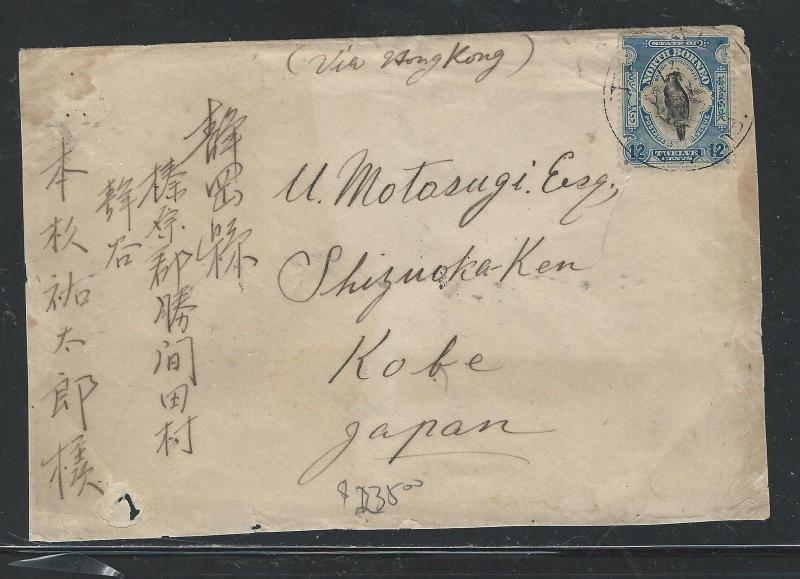 (Via Hong Kong)
STATE OF
NORTH BORNEO
POSTAGE & REVENUE
12 TWELVE CENTS 12
U. Motosugi. Esq,
Shizuoka-Ken
Kobe
Japan
靜岡縣
榛原郡勝間田村
靜谷
本杉祐太郎様
1